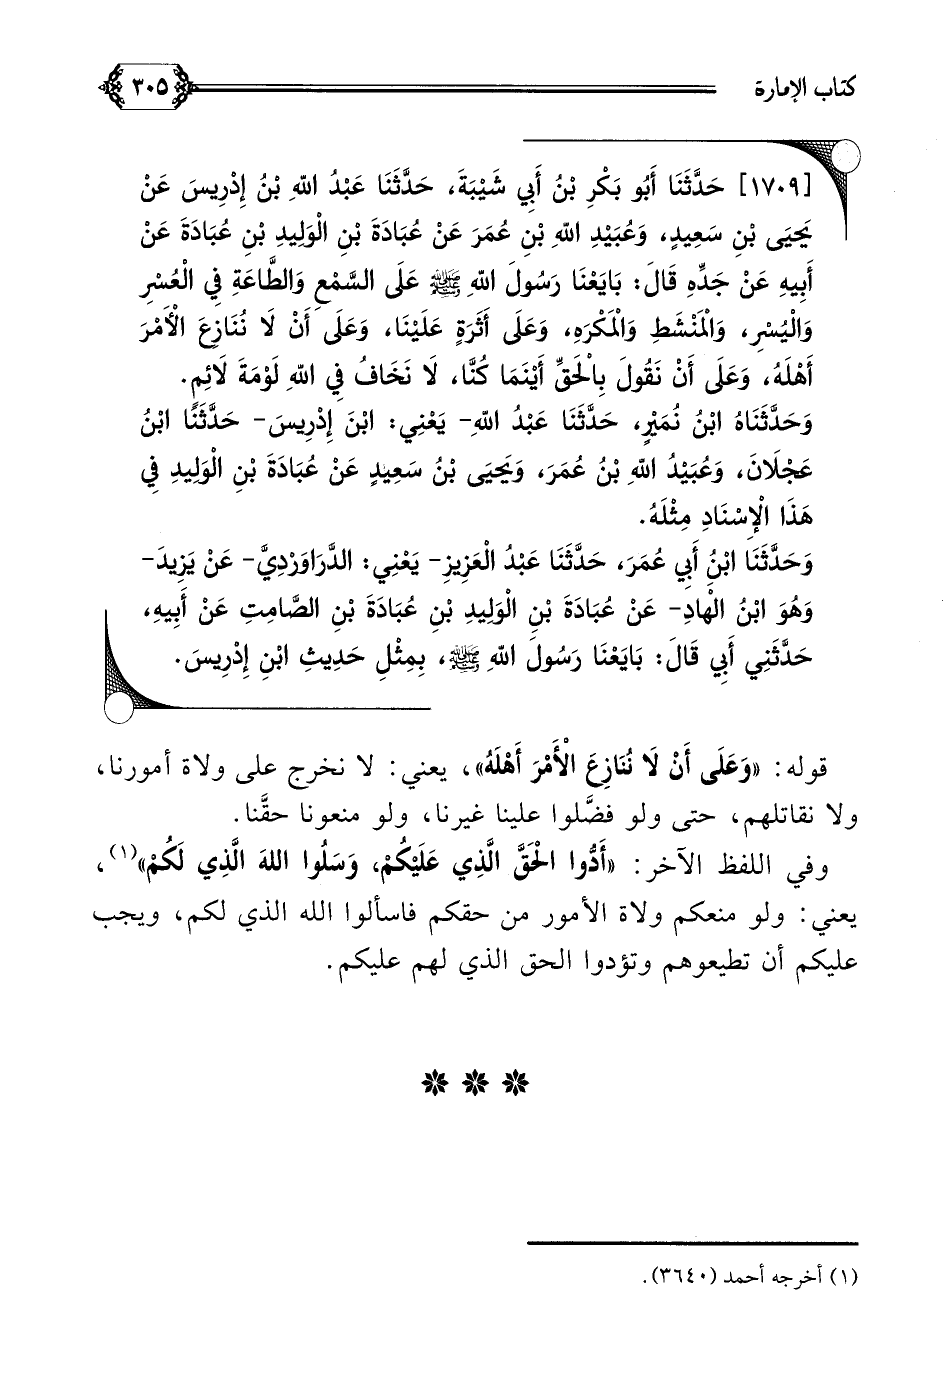 كتاب الإمارة ٣٠٥
[١٧٠٩] حَدَّثَنَا أَبُو بَكْرِ بْنُ أَبِي شَيْبَةَ، حَدَّثَنَا عَبْدُ اللهِ بْنُ إِدْرِيسَ عَنْ
يَحْيَى بْنِ سَعِيدٍ، وَعُبَيْدِ اللهِ بْنِ عُمَرَ عَنْ عُبَادَةَ بْنِ الْوَلِيدِ بْنِ عُبَادَةَ عَنْ
أَبِيهِ عَنْ جَدِّهِ قَالَ: بَايَعْنَا رَسُولَ اللهِ ﷺ عَلَى السَّمْعِ وَالطَّاعَةِ فِي الْعُسْرِ
وَالْيُسْرِ، وَالْمَنْشَطِ وَالْمَكْرَهِ، وَعَلَى أَثَرَةٍ عَلَيْنَا، وَعَلَى أَنْ لَا نُنَازِعَ الْأَمْرَ
أَهْلَهُ، وَعَلَى أَنْ نَقُولَ بِالْحَقِّ أَيْنَمَا كُنَّا، لَا نَخَافُ فِي اللهِ لَوْمَةَ لَائِمٍ.
وَحَدَّثَنَاهُ ابْنُ نُمَيْرٍ، حَدَّثَنَا عَبْدُ اللهِ- يَعْنِي: ابْنَ إِدْرِيسَ- حَدَّثَنَا ابْنُ
عَجْلَانَ، وَعُبَيْدُ اللهِ بْنُ عُمَرَ، وَيَحْيَى بْنُ سَعِيدٍ عَنْ عُبَادَةَ بْنِ الْوَلِيدِ فِي
هَذَا الْإِسْنَادِ مِثْلَهُ.
وَحَدَّثَنَا ابْنُ أَبِي عُمَرَ، حَدَّثَنَا عَبْدُ الْعَزِيزِ- يَعْنِي: الدَّرَاوَرْدِيَّ- عَنْ يَزِيدَ-
وَهُوَ ابْنُ الْهَادِ- عَنْ عُبَادَةَ بْنِ الْوَلِيدِ بْنِ عُبَادَةَ بْنِ الصَّامِتِ عَنْ أَبِيهِ،
حَدَّثَنِي أَبِي قَالَ: بَايَعْنَا رَسُولَ اللهِ ﷺ، بِمِثْلِ حَدِيثِ ابْنِ إِدْرِيسَ.
قوله: «وَعَلَى أَنْ لَا نُنَازِعَ الْأَمْرَ أَهْلَهُ»، يعني: لا نخرج على ولاة أمورنا،
ولا نقاتلهم، حتى ولو فضَّلوا علينا غيرنا، ولو منعونا حقَّنا.
وفي اللفظ الآخر: «أَدُّوا الْحَقَّ الَّذِي عَلَيْكُمْ، وَسَلُوا اللهَ الَّذِي لَكُمْ»(١)،
يعني: ولو منعكم ولاة الأمور من حقكم فاسألوا الله الذي لكم، ويجب
عليكم أن تطيعوهم وتؤدوا الحق الذي لهم عليكم.
(١) أخرجه أحمد (٣٦٤٠).